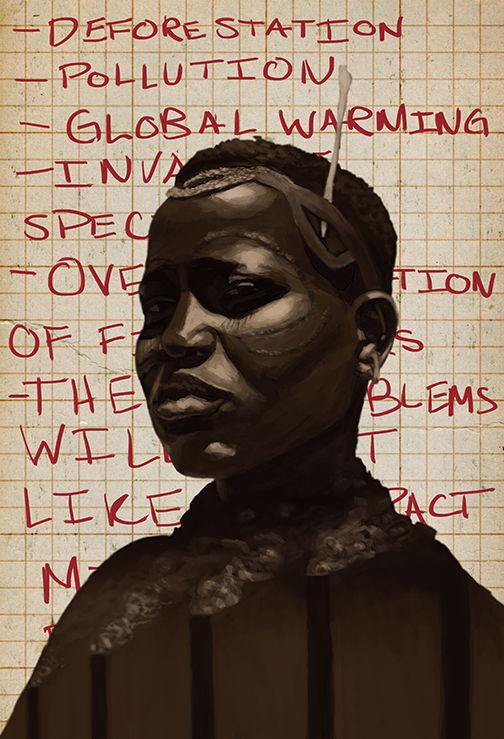 - DEFORESTATION
- POLLUTION
- GLOBAL WARMING
- INVA
SPEC
- OVE TION
OF F S
- THE BLEMS
WILL T
LIKE PACT
M